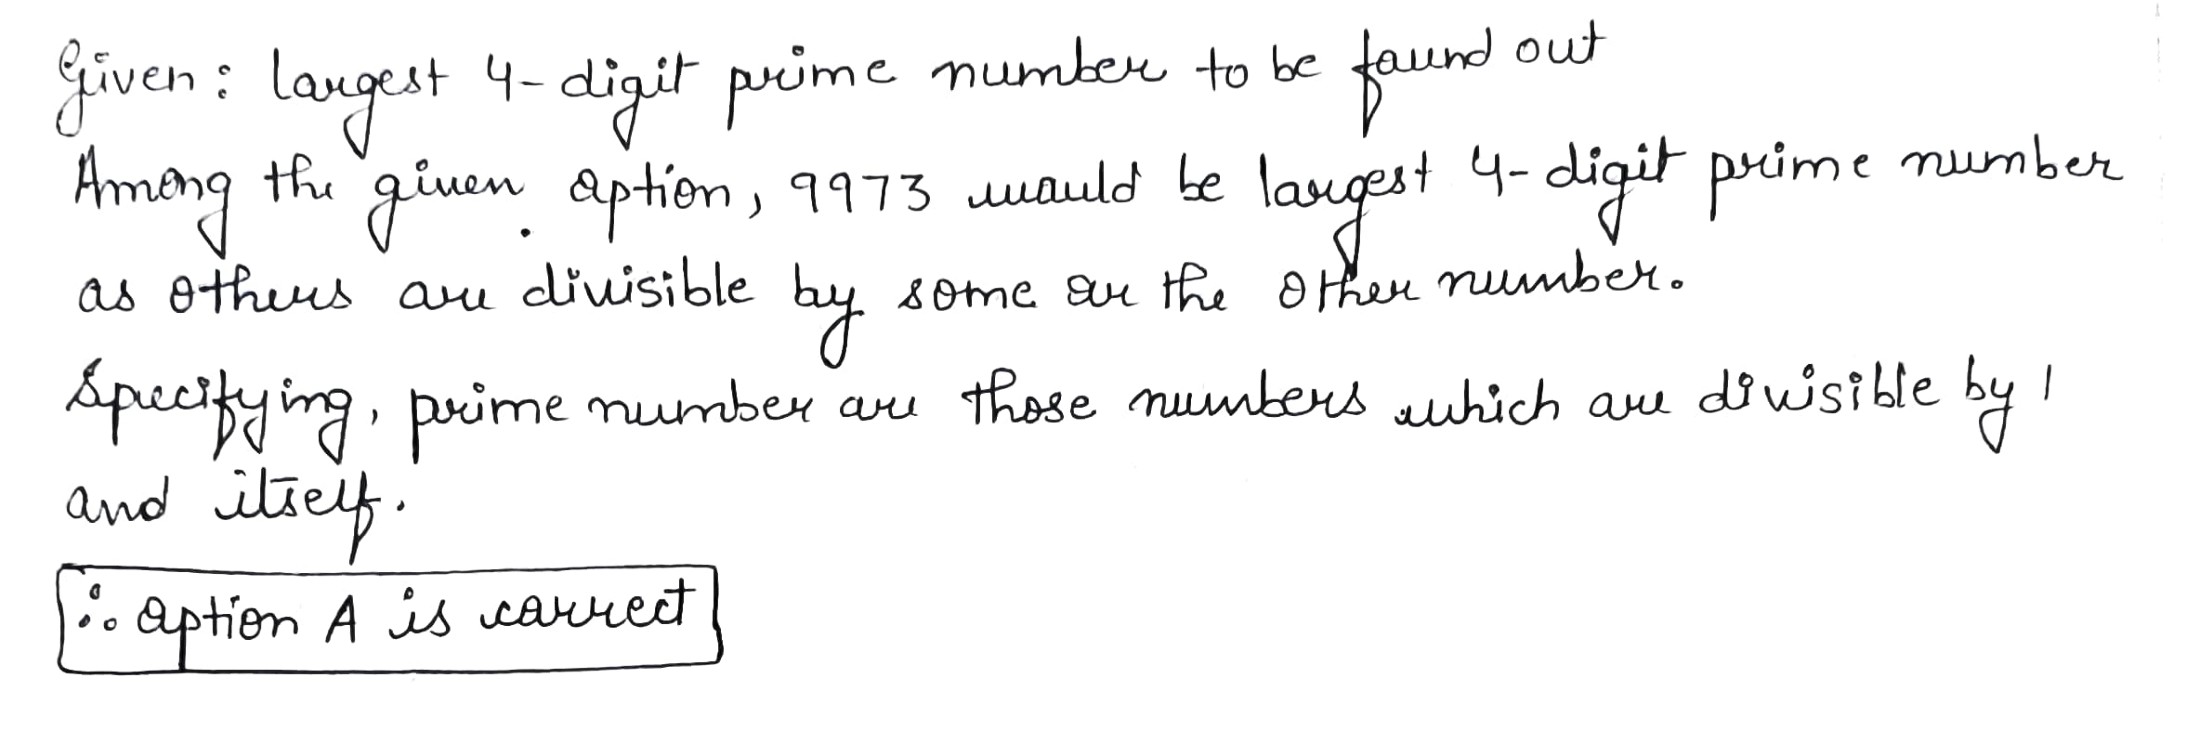 Given: largest 4-digit prime number to be found out
Among the given option, 9973 would be largest 4-digit prime number
as others are divisible by some or the other number.
Specifying, prime number are those numbers which are divisible by 1
and itself.
∴ option A is correct